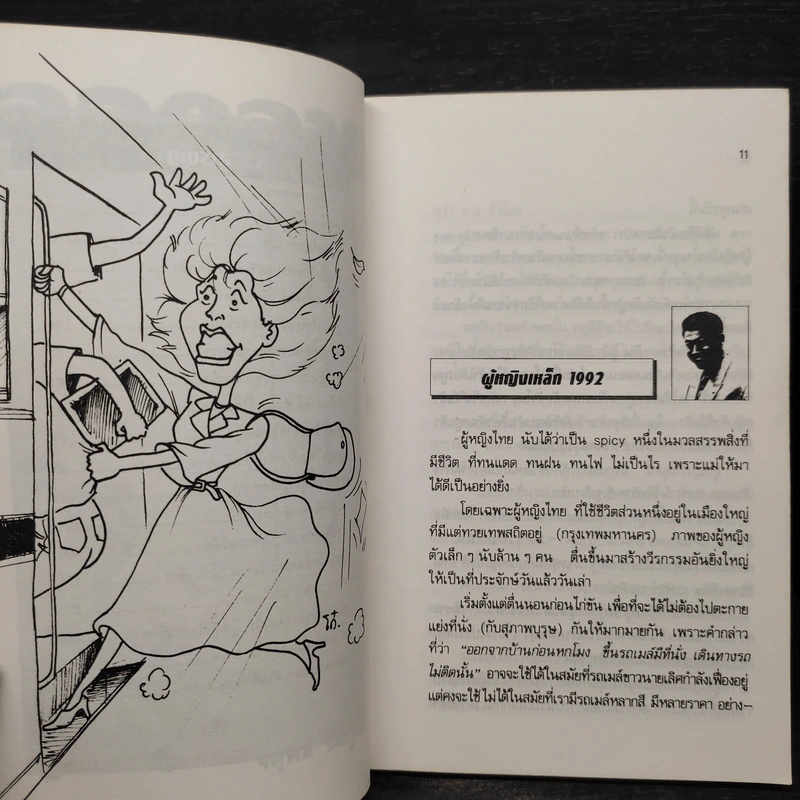 11
ผู้หญิงเหล็ก 1992
ผู้หญิงไทย นับได้ว่าเป็น spicy หนึ่งในมวลสรรพสิ่งที่
มีชีวิต ที่ทนแดด ทนฝน ทนไฟ ไม่เป็นไร เพราะแม่ให้มา
ได้ดีเป็นอย่างยิ่ง
โดยเฉพาะผู้หญิงไทย ที่ใช้ชีวิตส่วนหนึ่งอยู่ในเมืองใหญ่
ที่มีแต่ทวยเทพสถิตอยู่ (กรุงเทพมหานคร) ภาพของผู้หญิง
ตัวเล็ก ๆ นับล้าน ๆ คน ตื่นขึ้นมาสร้างวีรกรรมอันยิ่งใหญ่
ให้เป็นที่ประจักษ์วันแล้ววันเล่า
เริ่มตั้งแต่ตื่นนอนก่อนไก่ขัน เพื่อที่จะได้ไม่ต้องไปตะกาย
แย่งที่นั่ง (กับสุภาพบุรุษ) กันให้มากมายกัน เพราะคำกล่าว
ที่ว่า “ออกจากบ้านก่อนหกโมง ขึ้นรถเมล์มีที่นั่ง เดินทางรถ
ไม่ติดนั้น” อาจจะใช้ได้ในสมัยที่รถเมล์ขาวนายเลิศกำลังเฟื่องอยู่
แต่คงจะใช้ไม่ได้ในสมัยที่เรามีรถเมล์หลากสี มีหลายราคา อย่าง–